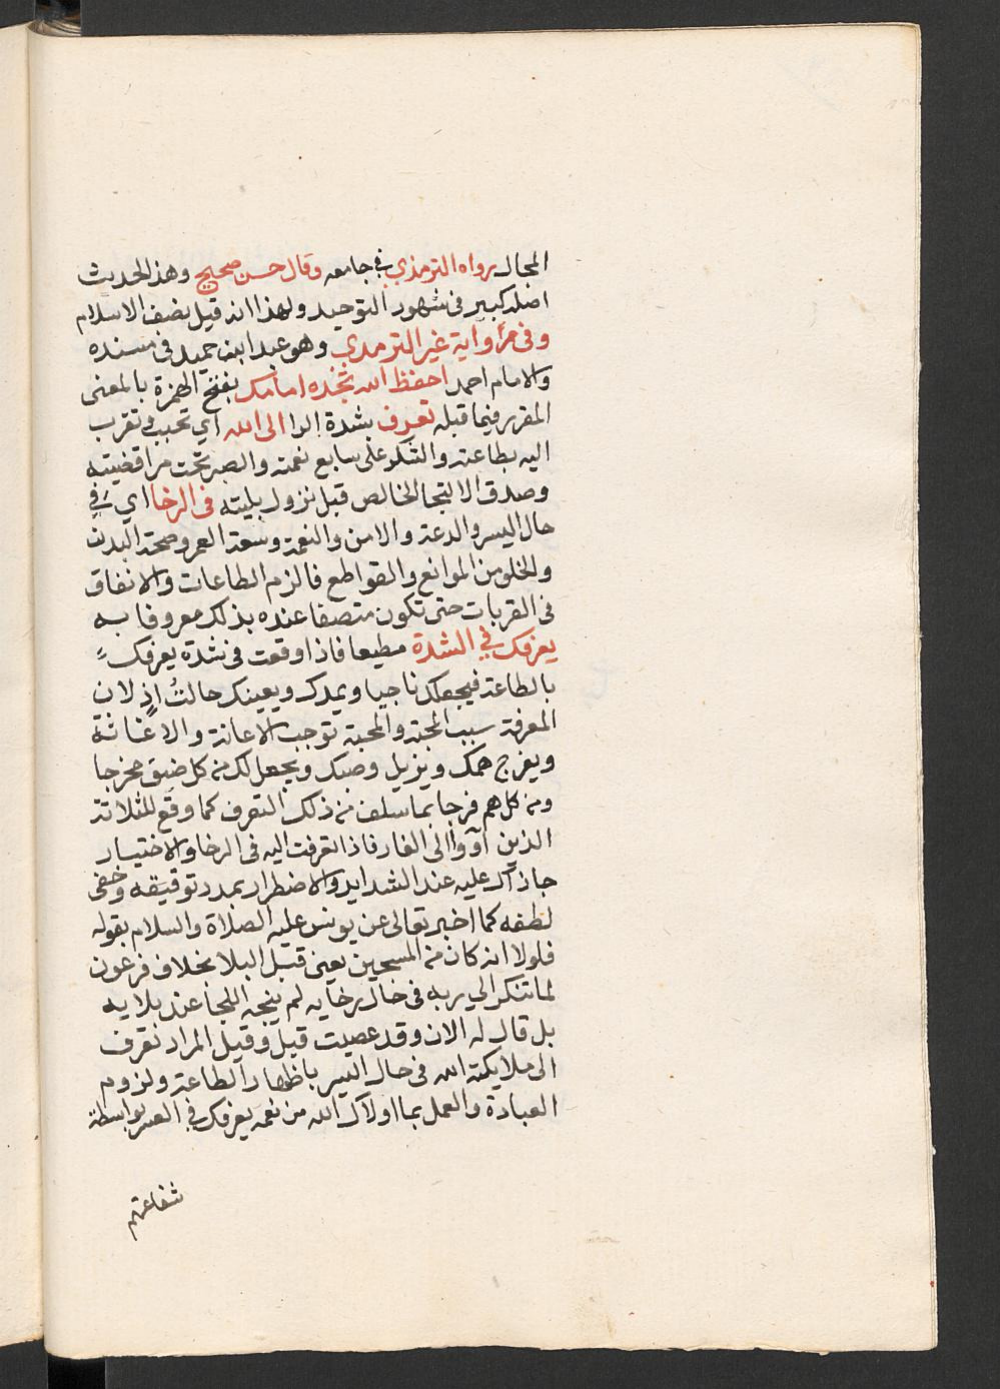 المجال رواه الترمذي في جامعه وقال حسن صحيح وهذا الحديث
اصل كبير في شهود التوحيد ولهذا انه قيل نصف الاسلام
وفي رواية غير الترمدي وهو عبد ابن حميد في مسنده
والامام احمد احفظ الله تجده امامك بفتح الهمزة بالمعنى
المقرر فيما قبله تعرف بشدة الرا الى الله اي تحبب وتقرب
اليه بطاعته والشكر على سابع نعمته والصبر تحت مر اقضيته
وصدق الالتجا الخالص قبل نزول بليته في الرخا اي في
حال اليسر والدعة والامن والنعمة وسعة العمر وصحة البدن
والخلو من الموانع والقواطع فالزم الطاعات والانفاق
في القربات حتى تكون متصفا عنده بذلك معروفا به
يعرفك في الشدة مطيعا فاذا وقعت في شدة يعرفك
بالطاعة فيجعلك ناجيا ويمدك ويعينك حالتئذ لان
المعرفة سبب المحبة والمحبة توجب الاعانة والاغاثة
ويفرج همك ويزيل وصبك ويجعل لك من كل ضيق مخرجا
ومن كل هم فرجا بما سلف من ذلك التعرف كما وقع للثلاثة
الذين آووا الى الغار فاذا تعرفت اليه في الرخا والاختيار
جازاك عليه عند الشدايد والاضطرار بمدد توفيقه وخفى
لطفه كما اخبر تعالى عن يونس عليه الصلاة والسلام بقوله
فلولا انه كان من المسبحين يعني قبل البلا بخلاف فرعون
لما تنكر الي ربه في حال رخايه لم ينجه اللجا عند بلايه
بل قال له الان وقد عصيت قبل وقيل المراد تعرف
الى ملايكة الله في حال اليسر باظهار الطاعة ولزوم
العبادة والعمل بما اولاك الله من نعمه يعرفك في العسر بواسطة
شفاعتهم